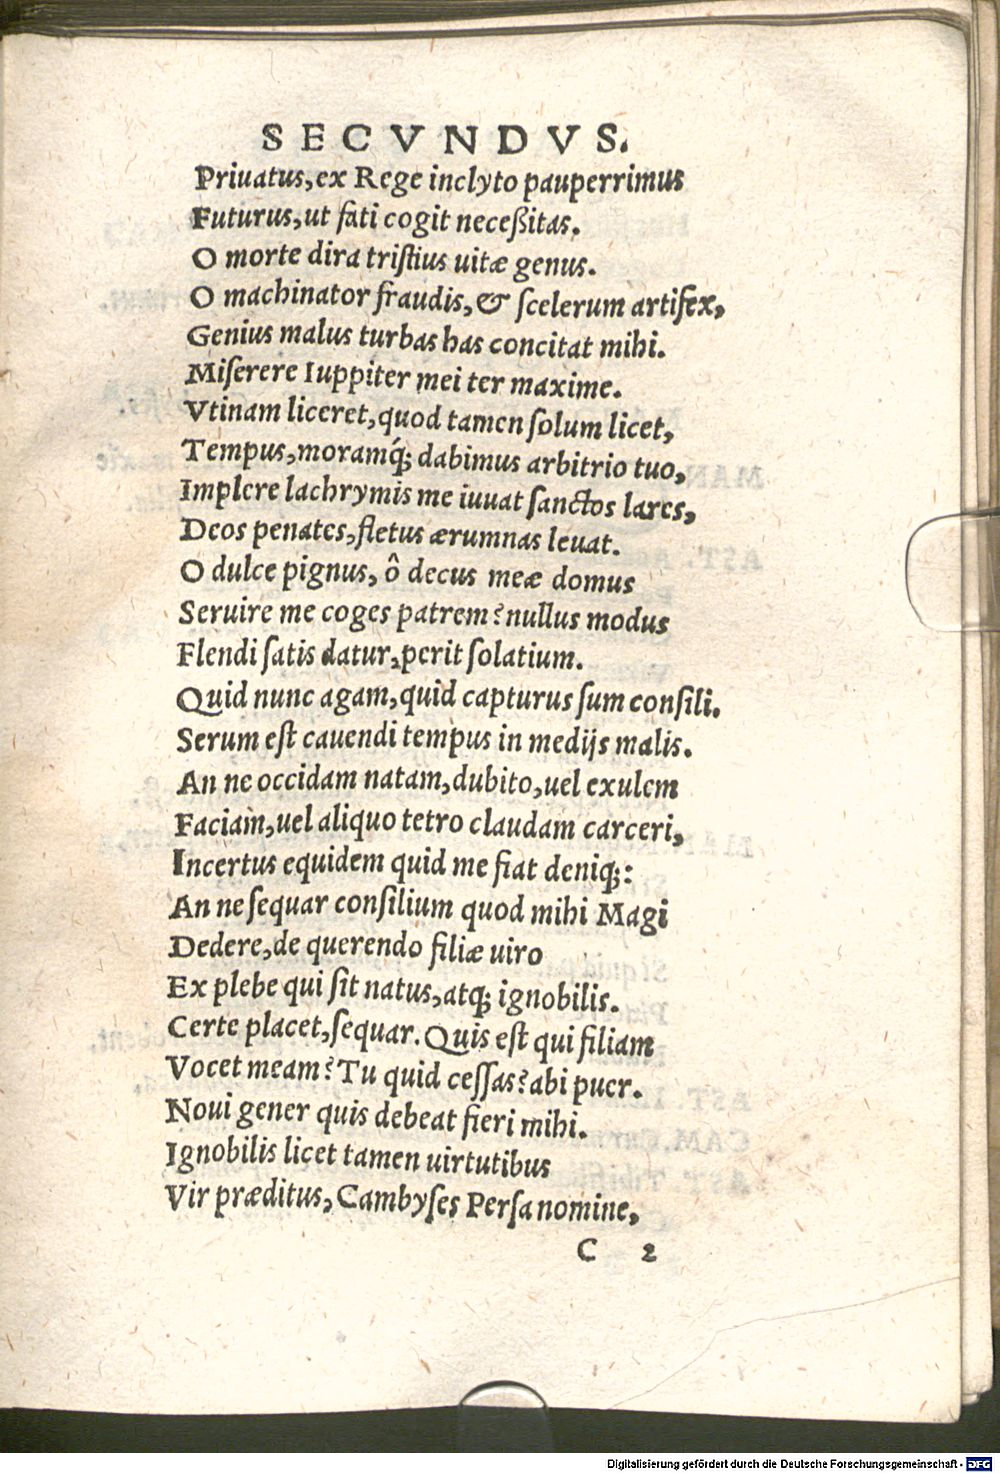 SECVNDVS.
Priuatus, ex Rege inclyto pauperrimus
Futurus, ut fati cogit neceßitas.
O morte dira triſtius uitæ genus.
O machinator fraudis, & ſcelerum artifex,
Genius malus turbas has concitat mihi.
Miſerere Iuppiter mei ter maxime.
Vtinam liceret, quod tamen ſolum licet,
Tempus, moramq́; dabimus arbitrio tuo,
Implere lachrymis me iuuat ſanctos lares,
Deos penates, fletus ærumnas leuat.
O dulce pignus, ô decus meæ domus
Seruire me coges patrem? nullus modus
Flendi ſatis datur, perit ſolatium.
Quid nunc agam, quid capturus ſum conſili.
Serum eſt cauendi tempus in medijs malis.
An ne occidam natam, dubito, uel exulem
Faciam, uel aliquo tetro claudam carceri,
Incertus equidem quid me fiat deniq;:
An ne ſequar conſilium quod mihi Magi
Dedere, de querendo filiæ uiro
Ex plebe qui ſit natus, atq; ignobilis.
Certe placet, ſequar. Quis eſt qui filiam
Vocet meam? Tu quid ceſſas? abi puer.
Noui gener quis debeat fieri mihi.
Ignobilis licet tamen uirtutibus
Vir præditus, Cambyſes Perſa nomine,
C 2
Digitalisierung gefördert durch die Deutsche Forschungsgemeinschaft - DFG